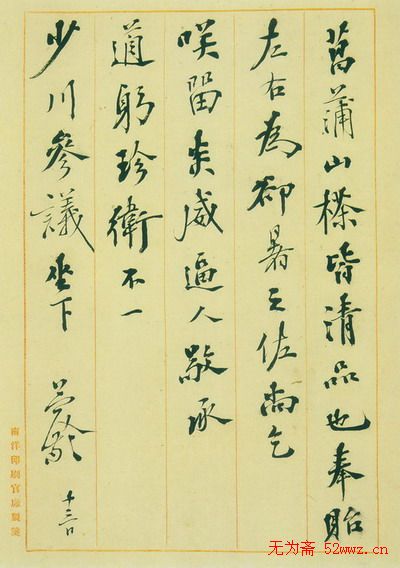 菖蒲山皆清品也奉貽
左右為卻暑之佐尚乞
咲留炎威逼人敬承
道躬珍衛不一
少川參議坐下
十三日
南洋印刷官廠製箋
无为斋 52wwz.cn